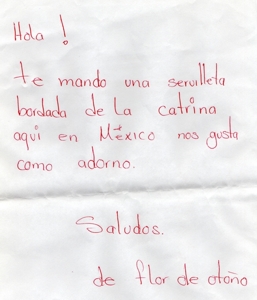 Hola !
te mando una servilleta
bordada de la catrina
aquí en México nos gusta
como adorno.
Saludos.
de flor de otoño